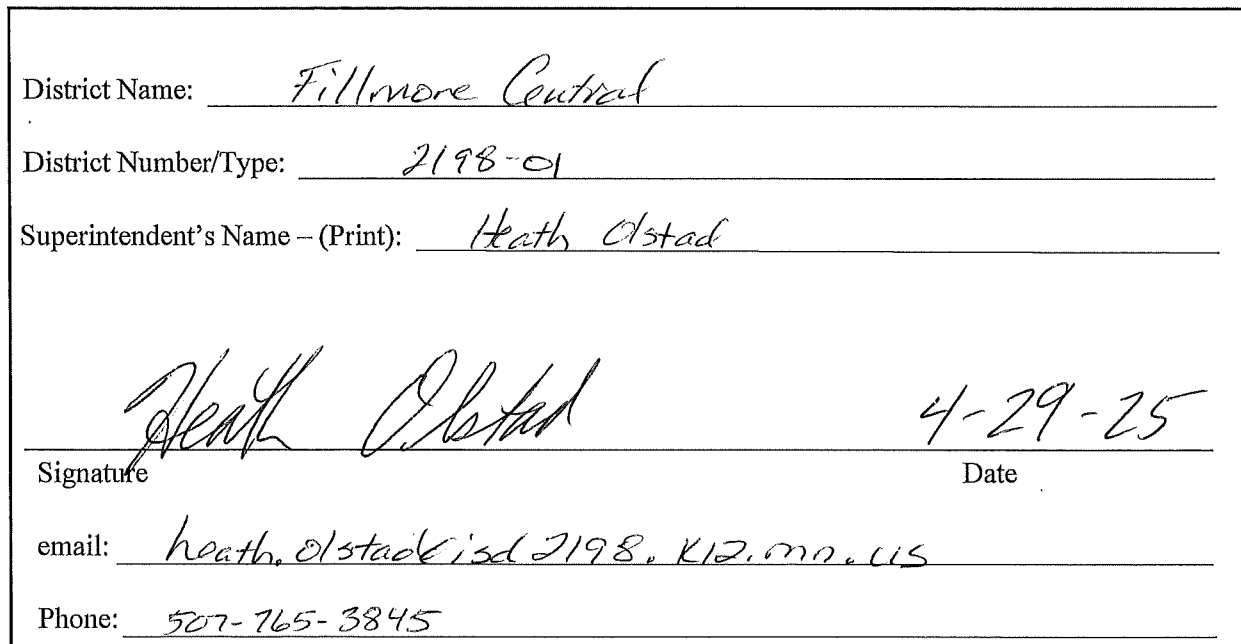 District Name: Fillmore Central
District Number/Type: 2198-01
Superintendent's Name – (Print): Heath Olstad
Heath Olstad 4-29-25
Signature Date
email: heath.olstad@isd2198.k12.mn.us
Phone: 507-765-3845